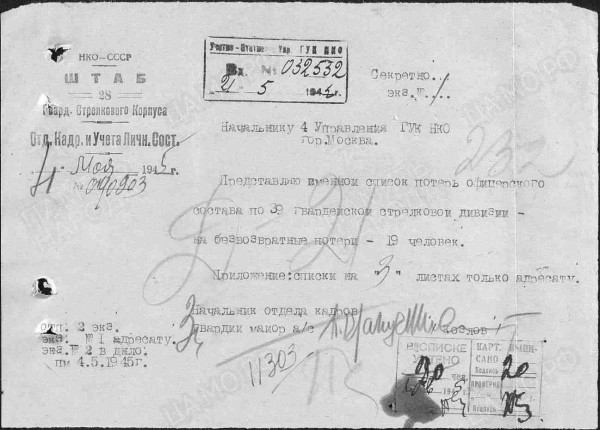 НКО-СССР
ШТАБ
28
Гвард. Стрелкового Корпуса
Отд. Кадр. и Учета Личн. Сост.
4 Мая 1945 г.
№
Учетно-Статист. Упр. ГУК НКО
Вх. № 032532
21 5 1945 г.
Секретно.
экз. № 1.
Начальнику 4 Управления ГУК НКО
гор.Москва.
232
Представляю именной список потерь офицерского
состава по 39 гвардейской стрелковой дивизии -
на безвозвратные потери - 19 человек.
Приложение:списки на "3" листах только адресату.
Начальник отдела кадров
гвардии майор а/с
Козлов
отп. 2 экз.
экз. № 1 адресату.
экз.№ 2 в дело.
пм 4.5.1945г.
11303
КАРТ. ВЫПИ-
САНО 20
Подпись
ПРОВЕРЕНО
Подпись